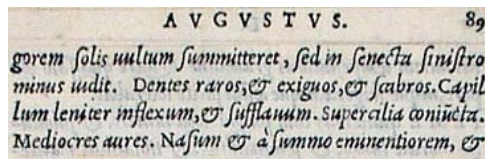 AVGVSTVS. 89
gorem ſolis uultum ſummitteret, ſed in ſenecta ſiniſtro
minus uidit. Dentes raros, & exiguos, & ſcabros. Capil
lum leniter inflexum, & ſufflauum. Supercilia coniũcta.
Mediocres aures. Naſum & à ſummo eminentiorem, &